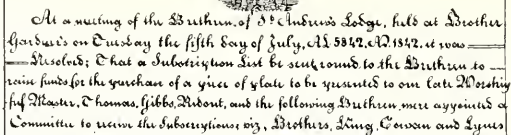 At a meeting of the Brethren, of St. Andrew's Lodge, held at Brother
Gardner's on Tuesday the fifth day of July, AL 5842, AD. 1842, it was
Resolved; That a Subscription List be sent round to the Brethren to
raise funds for the purchase of a piece of plate to be presented to our late Worship
ful Master, Thomas, Gibbs, Ridout, and the following Brethren, were appointed a
Committee to receive the Subscriptions viz, Brothers, King, Cowan and Lynes